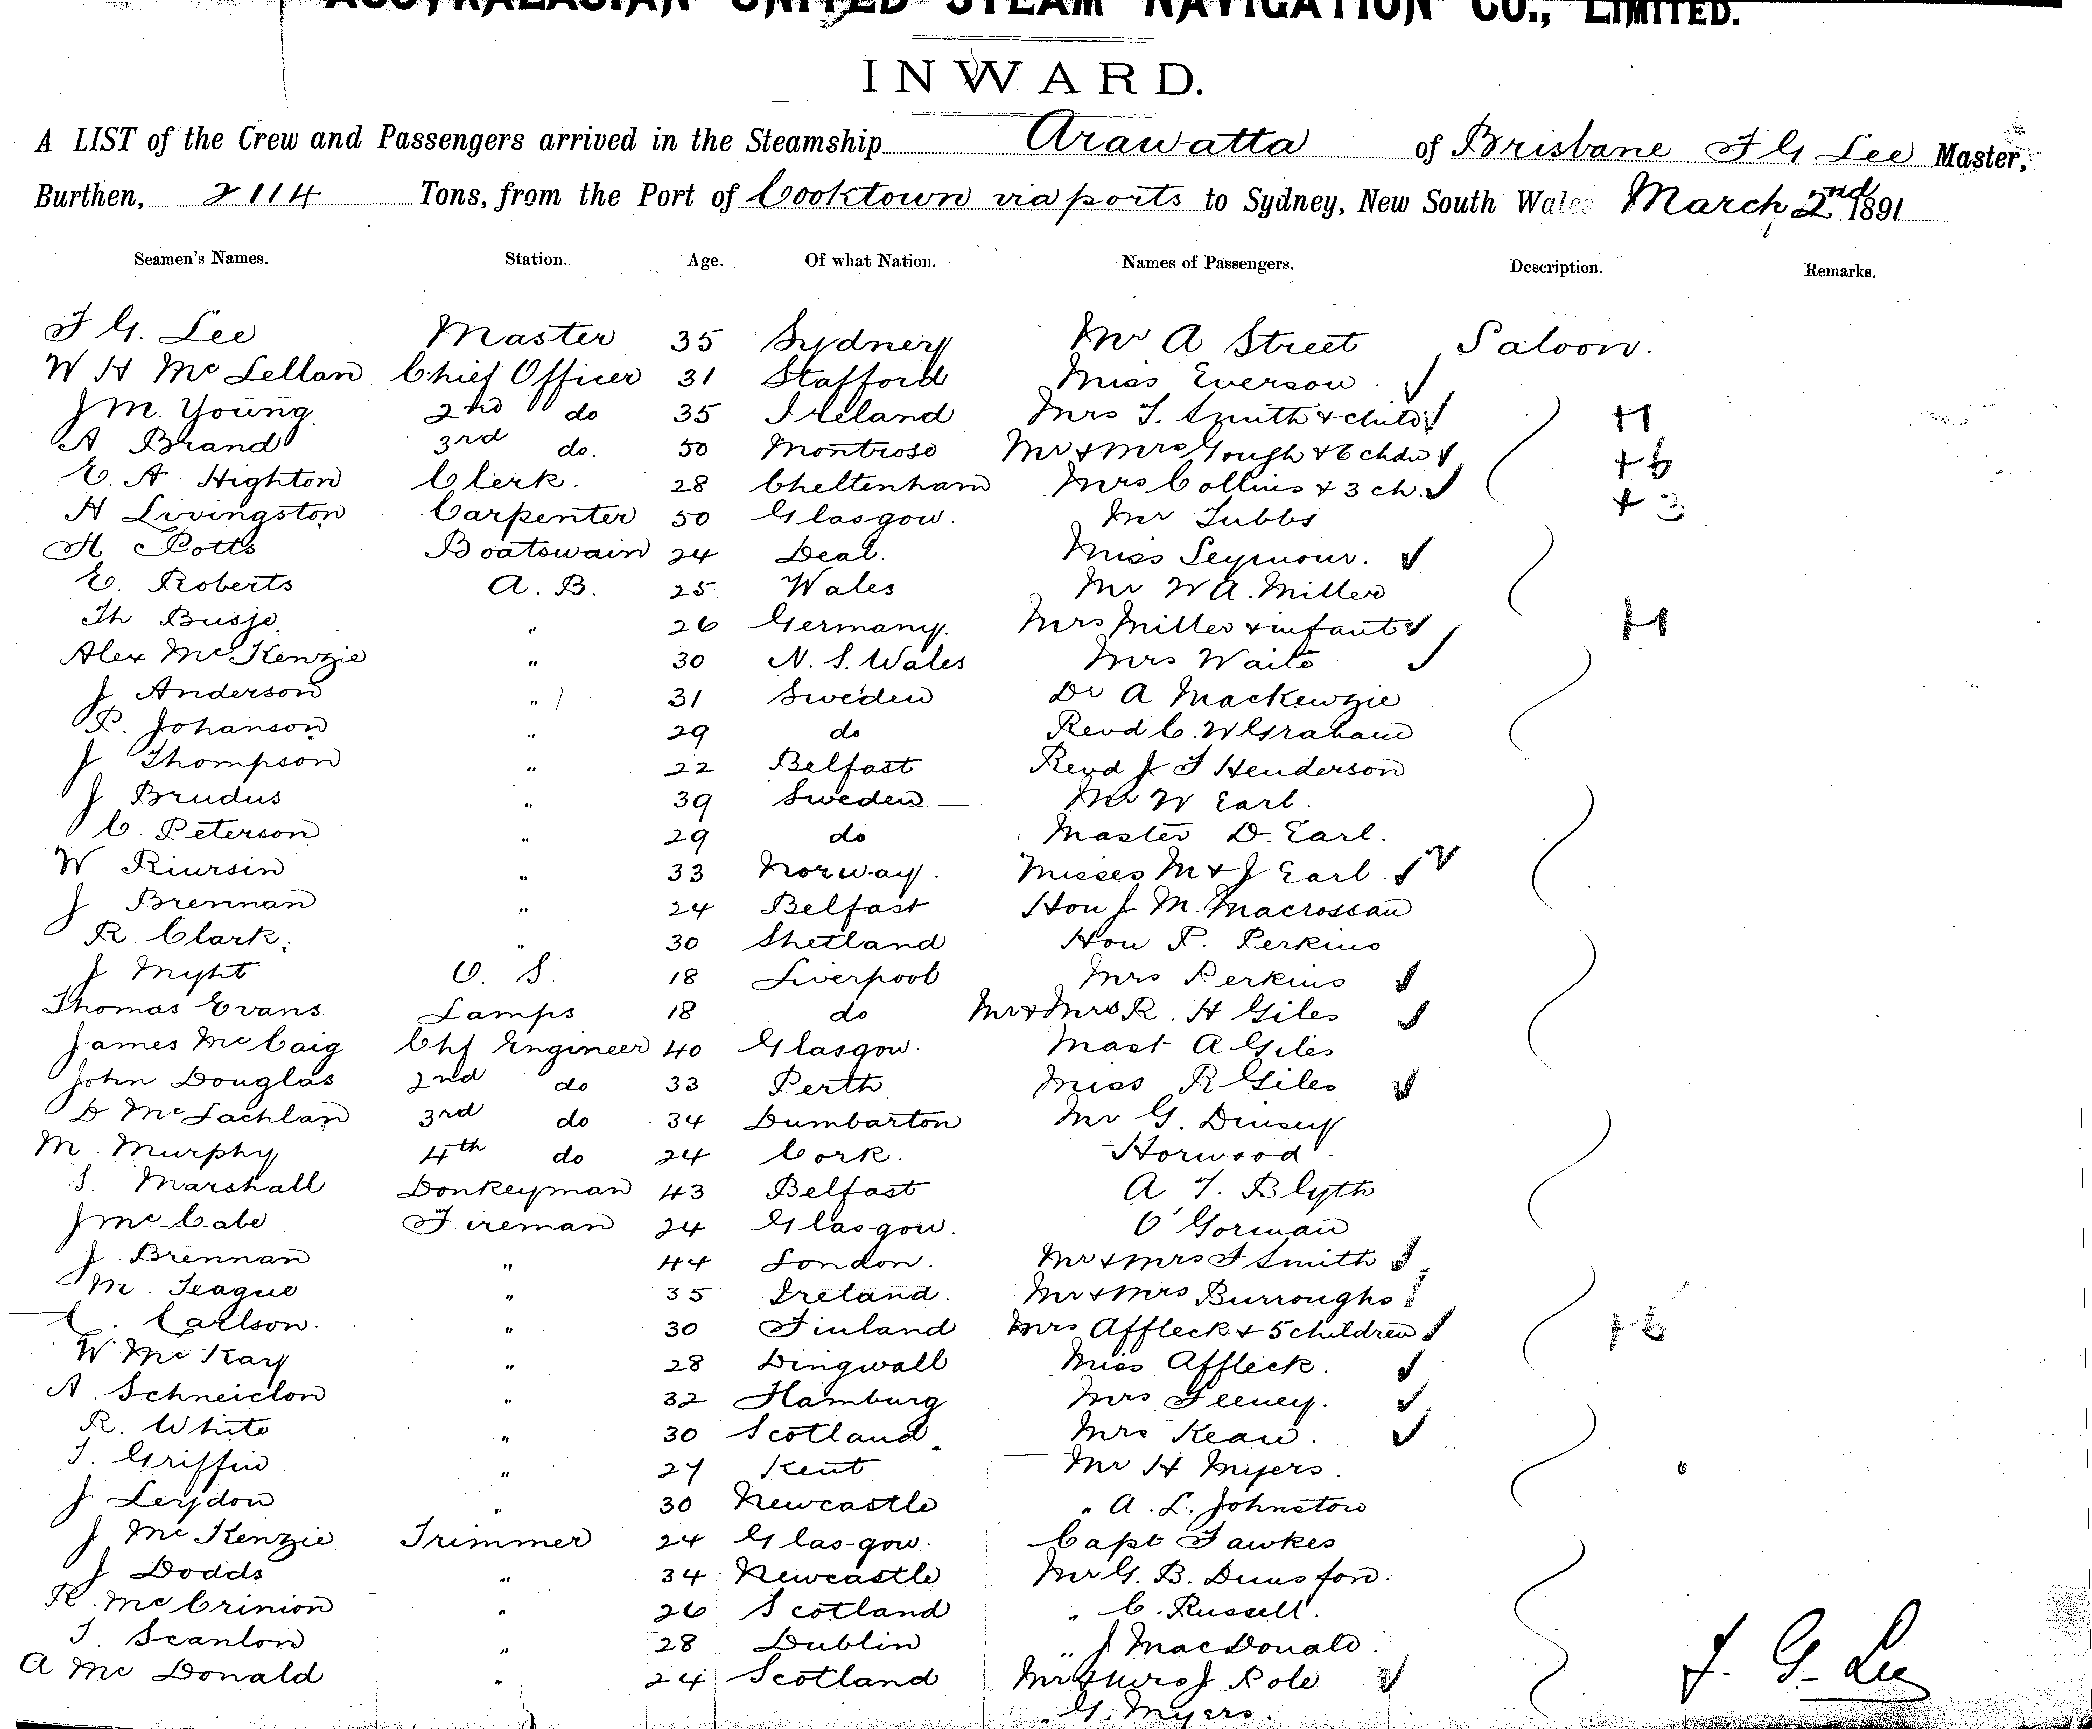 AUSTRALASIAN UNITED STEAM NAVIGATION CO., LIMITED.
INWARD.
A LIST of the Crew and Passengers arrived in the Steamship Arawatta of Brisbane F G Lee Master,
Burthen, 2114 Tons, from the Port of Cooktown via ports to Sydney, New South Wales March 2nd 1891
Seamen's Names. Station. Age. Of what Nation. Names of Passengers. Description. Remarks.
F G. Lee Master 35 Sydney Mr A Street Saloon.
W H McLellan Chief Officer 31 Stafford Miss Everson
J M. Young 2nd do 35 Ireland Mrs T. Smith + child +1
A Brand 3rd do. 50 Montrose Mr + Mrs Gough + 6 chdn +6
E. A Highton Clerk. 28 Cheltenham Mrs Collins + 3 ch. +3
H Livingston Carpenter 50 Glasgow. Mr Tubbs
H Potts Boatswain 24 Deal. Miss Seymour.
E. Roberts A. B. 25 Wales Mr W A. Miller
Th Busje " 26 Germany. Mrs Miller + infant +1
Alex McKenzie " 30 N. S. Wales Mrs Waite
J Anderson " 31 Sweden Dr A Mackenzie
P. Johanson " 29 do Revd C. W Graham
J Thompson " 22 Belfast Revd J T Henderson
J Brudus " 39 Sweden Mr W Earl.
C. Peterson " 29 do Master D. Earl.
W Riursin " 33 Norway. Misses M + J Earl
J Brennan " 24 Belfast Hon J M. Macrossan
R Clark. " 30 Shetland Hon P. Perkins
J Myht O. S. 18 Liverpool Mrs Perkins
Thomas Evans Lamps 18 do Mr + Mrs R. H Giles
James McCaig Chf Engineer 40 Glasgow. Mast A Giles
John Douglas 2nd do 33 Perth Miss R Giles
D McLachlan 3rd do 34 Dumbarton Mr G.
M. Murphy 4th do 24 Cork. Horwood
S. Marshall Donkeyman 43 Belfast A T. Blyth
J McCabe Fireman 24 Glasgow. O'Gorman
J Brennan " 44 London. Mr + Mrs F Smith
M. Teague " 35 Ireland. Mr + Mrs Burroughs
C. Carlson. " 30 Finland Mrs Affleck + 5 children
W McKay " 28 Dingwall Miss Affleck.
A. Schneiclon " 32 Hamburg Mrs Feeney.
R. White " 30 Scotland. Mrs Kean.
T. Griffin " 27 Kent Mr H Myers.
J Leydon " 30 Newcastle " A. L. Johnston
J McKenzie Trimmer 24 Glasgow. Capt Fawkes
J Dodds " 34 Newcastle Mr G. B. Dunsford.
R. McCrinion " 26 Scotland " C. Russell.
T. Scanlon " 28 Dublin " J MacDonald.
A McDonald " 24 Scotland Mr + Mrs J Role
" G. Myers.
F. G. Lee